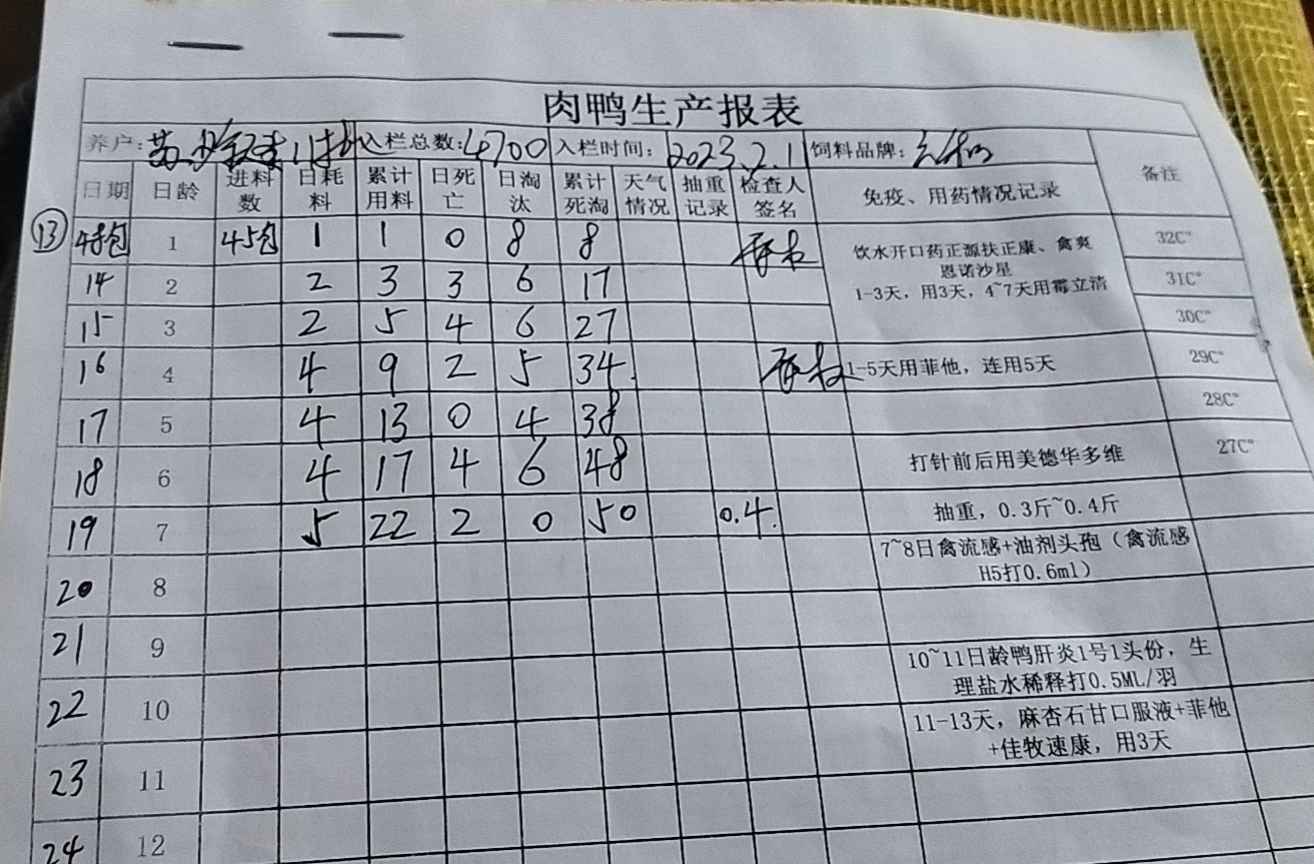 肉鸭生产报表
养户: 入栏总数: 4700 入栏时间: 2023.2.1 饲料品牌:
日期 日龄 进料数 日耗料 累计用料 日死亡 日淘汰 累计死淘 天气情况 抽重记录 检查人签名 免疫、用药情况记录 备注
13 48包 1 45包 1 1 0 8 8 饮水开口药正源扶正康、禽爽 32C°
恩诺沙星
14 2 2 3 3 6 17 1-3天，用3天，4~7天用霉立清 31C°
15 3 2 5 4 6 27 30C°
16 4 4 9 2 5 34 1-5天用菲他，连用5天 29C°
17 5 4 13 0 4 38 28C°
18 6 4 17 4 6 48 打针前后用美德华多维 27C°
19 7 5 22 2 0 50 0.4 抽重，0.3斤~0.4斤
20 8 7~8日禽流感+油剂头孢（禽流感
H5打0.6ml）
21 9
22 10 10~11日龄鸭肝炎1号1头份，生
理盐水稀释打0.5ML/羽
23 11 11-13天，麻杏石甘口服液+菲他
+佳牧速康，用3天
24 12